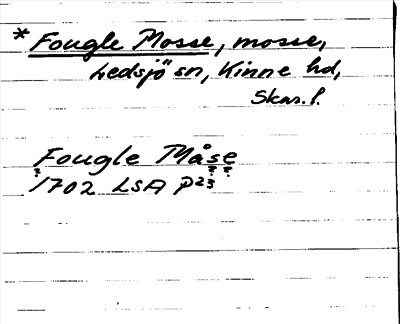 * Fougle Mosse, mosse,
Ledsjö sn, Kinne hd,
Skar. l.
Fougle Måse
? ? ?
1702 LSA P23